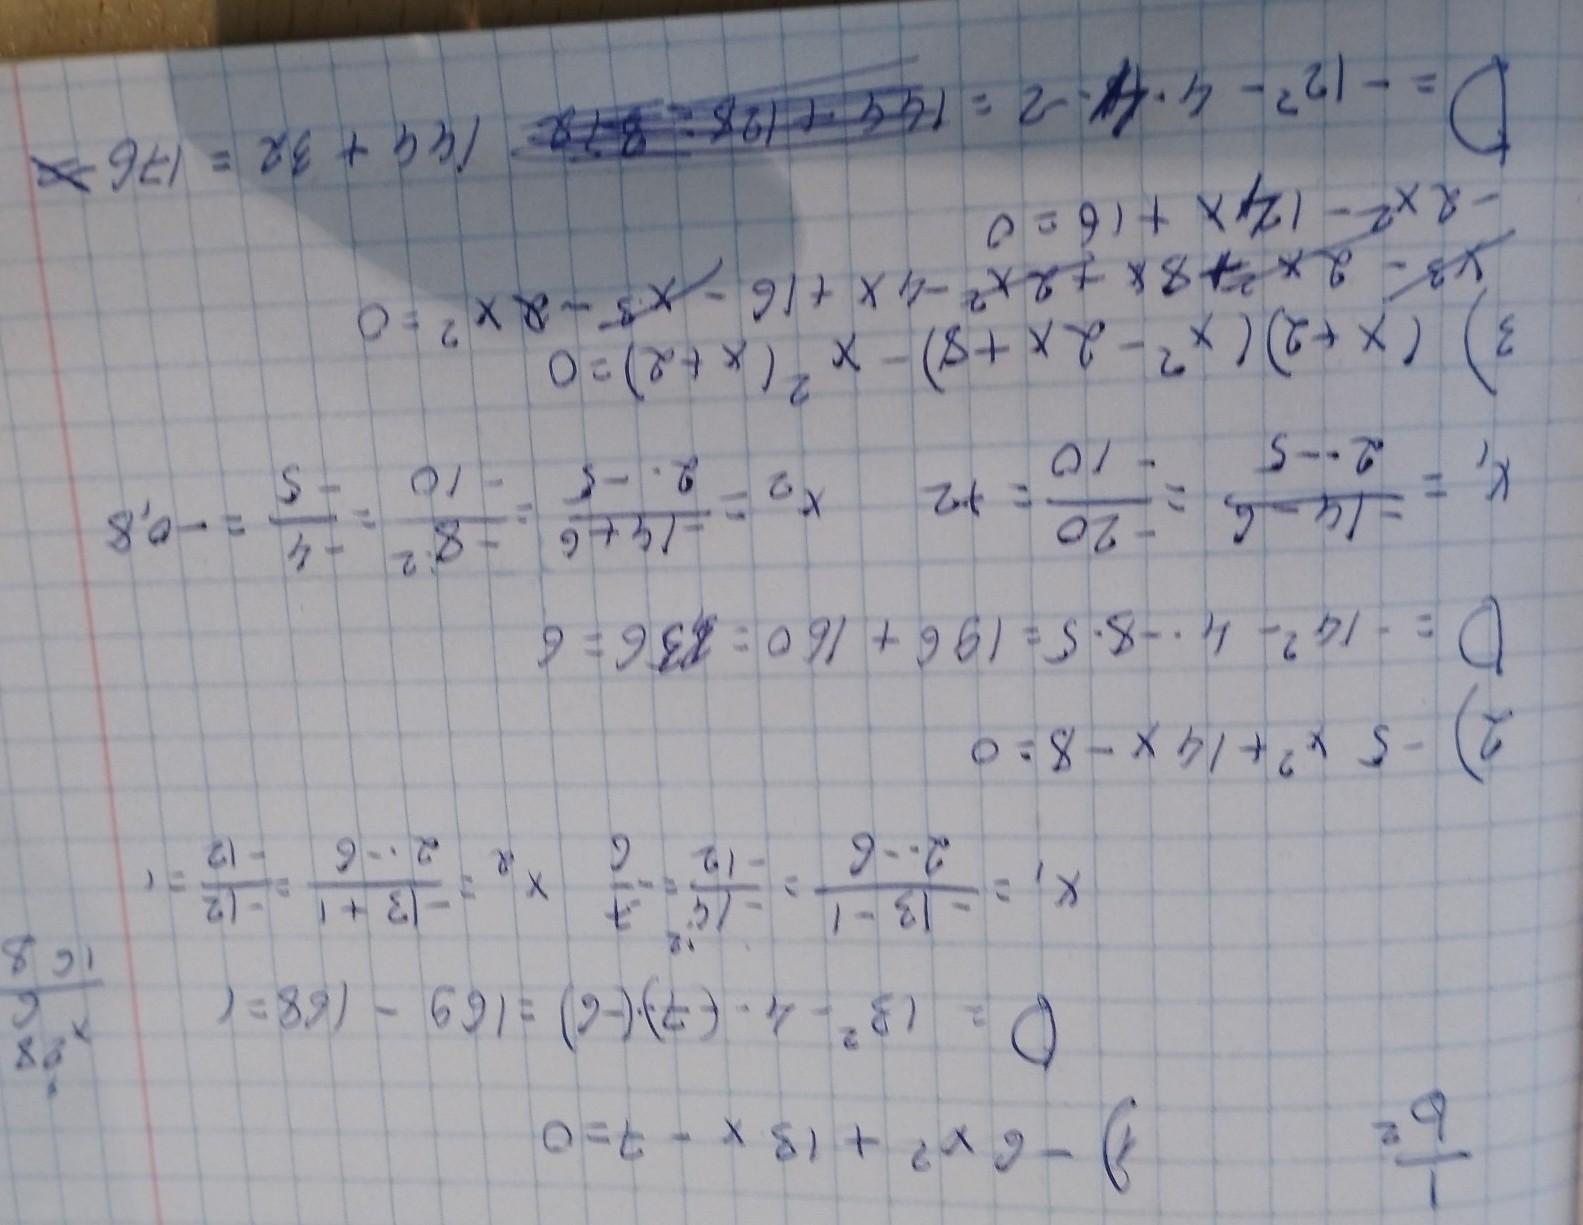 1) - 6x² + 13x - 7 = 0
D = 13² - 4 · (-7) · (-6) = 169 - 168 = 1
x₁ = (-13 - 1)/(2 · -6) = -14/-12 = 7/6 x₂ = (-13 + 1)/(2 · -6) = -12/-12 = 1
x 28
6
168
2) - 5x² + 14x - 8 = 0
D = - 14² - 4 · -8 · 5 = 196 + 160 = 36 = 6
x₁ = (-14 - 6)/(2 · -5) = -20/-10 = +2 x₂ = (-14 + 6)/(2 · -5) = -8/-10 = -4/-5 = -0,8
3) (x + 2)(x² - 2x + 8) - x²(x + 2) = 0
x³ - 2x² + 8x + 2x² - 4x + 16 - x³ - 2x² = 0
- 2x² - 12x + 16 = 0
D = - 12² - 4 · 4 · -2 = 144 + 128 = 144 + 32 = 176